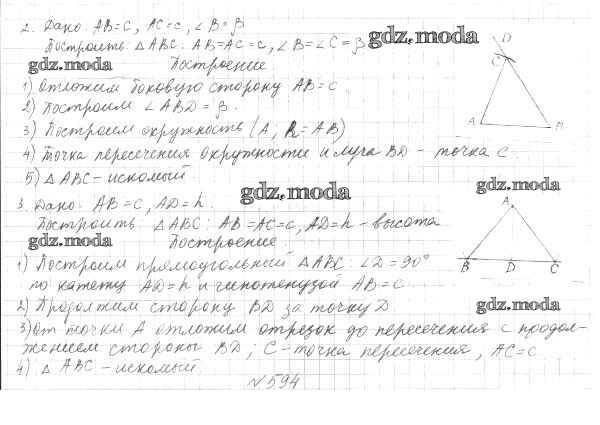 2. Дано: AB=c, AC=c, ∠B=β gdz.moda
Построить: △ABC: AB=AC=c, ∠B=∠C=β
gdz.moda Построение.
1) Отложим боковую сторону AB=c.
2) Построим ∠ABD=β.
3) Построим окружность (A, R=AB)
4) Точка пересечения окружности и луча BD – точка C.
5) △ABC – искомый.
D
C
A
B
gdz.moda
3. Дано: AB=c, AD=h.
Построить: △ABC: AB=AC=c, AD=h – высота
gdz.moda Построение.
1) Построим прямоугольный △ABC: ∠D=90°
по катету AD=h и гипотенузой AB=c
2) Продолжим сторону BD за точку D.
3) От точки A отложим отрезок до пересечения с продол-
жением стороны BD; C – точка пересечения, AC=c
4) △ABC – искомый.
gdz.moda
A
B D C
gdz.moda
№594